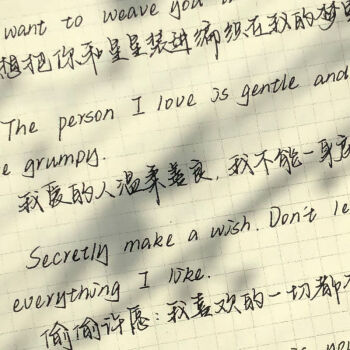 want to weave you
想把你和星星装进编织在我的梦里
The person I love is gentle and
e grumpy.
我爱的人温柔善良，我不能一身
Secretly make a wish. Don't le
everything I like.
偷偷许愿：我喜欢的一切都
you